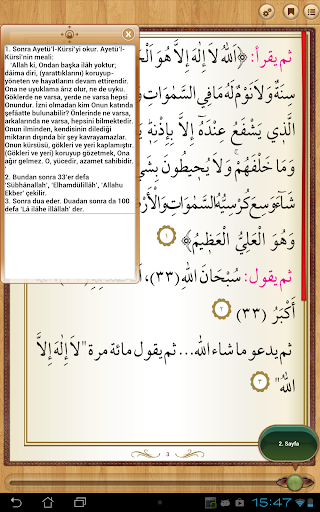 1. Sonra Ayetü'l-Kürsi'yi okur. Ayetü'l-
Kürsi'nin meali:
'Allah ki, Ondan başka ilâh yoktur;
dâima diri, (yarattıklarını) koruyup-
yöneten ve hayatlarını devam ettirendir.
Ona ne uyuklama ârız olur, ne de uyku.
Göklerde ne varsa, yerde ne varsa hepsi
Onundur. İzni olmadan kim Onun katında
şefâatte bulunabilir? Önlerinde ne varsa,
arkalarında ne varsa, hepsini bilmektedir.
Onun ilminden, kendisinin dilediği
miktarın dışında bir şey kavrayamazlar.
Onun kürsüsü, gökleri ve yeri kaplamıştır.
(Gökleri ve yeri) koruyup gözetmek, Ona
ağır gelmez. O, yücedir, azamet sahibidir.
2. Bundan sonra 33'er defa
'Sübhânallah', 'Elhamdülillâh', 'Allahu
Ekber' çekilir.
3. Sonra dua eder. Duadan sonra da 100
defa 'Lâ ilâhe illâllah' der.
ثم يقرأ: ﴿اَللّٰهُ لَا إِلٰهَ إِلَّا هُوَ الْحَيُّ
سِنَةٌ وَلَا نَوْمٌ لَهُ مَا فِي السَّمٰوَاتِ وَ
الَّذِي يَشْفَعُ عِنْدَهُ إِلَّا بِإِذْنِهِ
وَمَا خَلْفَهُمْ وَلَا يُحِيطُونَ بِشَيْ
شَاءَ وَسِعَ كُرْسِيُّهُ السَّمٰوَاتِ وَالْأَرْ
وَهُوَ الْعَلِيُّ الْعَظِيمُ﴾ ١
ثم يقول: سُبْحَانَ اللهِ (٣٣)،
أَكْبَرُ (٣٣) ٢
ثم يدعو ما شاء الله... ثم يقول مائة مرة "لَا إِلٰهَ إِلَّا
اللهُ" ٣
2. Sayfa
3
15:47